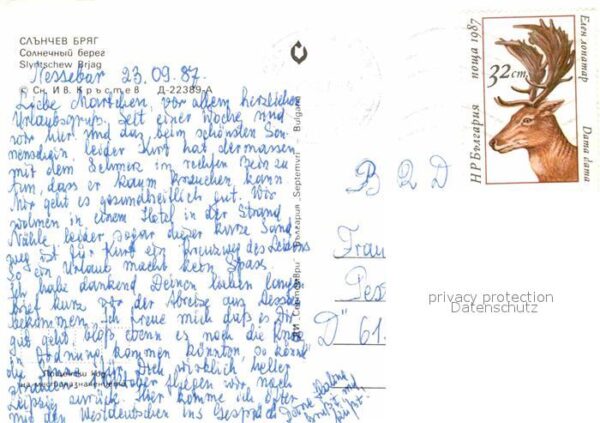 СЛЪНЧЕВ БРЯГ
Солнечный берег
Slyntschew Brjag
Nessebar 23.09.87.
© Сн. Ив. Кръстев Д-22389-А
vor allem herzlichen
Urlaubsgruß. Seit einer Woche sind
wir hier und das beim schönsten Son-
nenschein, leider hat dermassen
mit dem Schmerz im rechten Bein zu
tun, dass er kaum kann
Mir geht es gesundheitlich gut. Wir
wohnen in einem Hotel in der Strand
Nähe, leider sogar dieser kurze Sand
weg ist für Kurt ein Kreuzweg des Leidens
So ein Urlaub macht kein Spass
Ich habe dankend Deinen lieben langen
Brief kurz vor der Abreise aus Dessau
bekommen. Ich freue mich daß es Dir
gut geht, bloß wenn es noch die
in Ordnung kommen könnten, so
für Dich wirklich heller
Oktober fliegen wir nach
Leipzig zurück. Hier komme ich öfter
mit den Westdeutschen ins Gespräch
Deine
grüßt und
küßt.
България „Септември“ Bulgaria
поща 1987
Елен лопатар
32 ст.
НР България
Dama dama
B R D
Frau
Pes
D" 61
privacy protection
Datenschutz